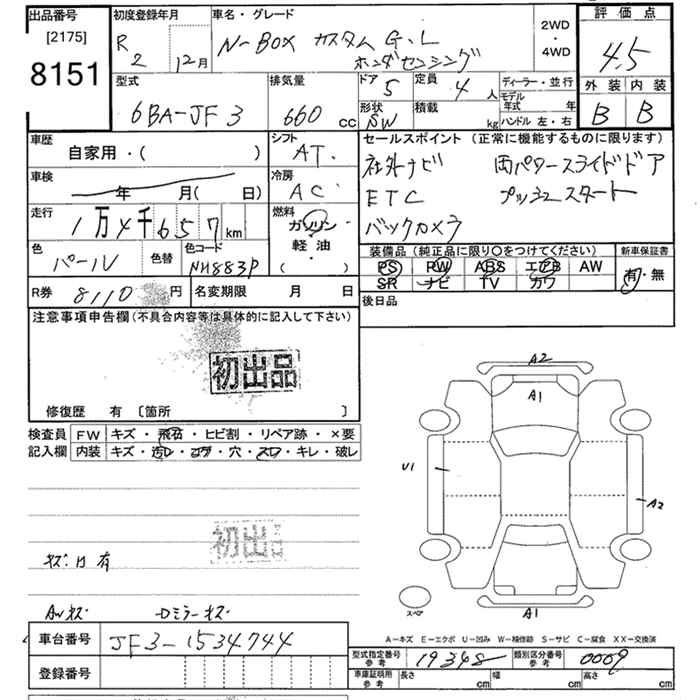 出品番号
[2175]
8151
初度登録年月
R 2 12月
車名・グレード
N-BOX カスタム G・L
ホンダセンシング
2WD
・
4WD
評価点
4.5
外装 内装
B B
型式
6BA-JF3
排気量
660 cc
ドア
5
定員
4人
形状
SW
積載
kg
ディーラー・並行
モデル年式 年
ハンドル 左・右
車歴
自家用・( )
シフト
AT
セールスポイント (正常に機能するものに限ります)
社外ナビ 両パワースライドドア
ETC プッシュスタート
バックカメラ
車検
年 月( 日)
冷房
AC
走行
1万4千657km
燃料
ガソリン・
軽油・
( )
色
パール
色替
色コード
NH883P
装備品 (純正品に限り〇をつけてください)
PS PW ABS エアB AW
SR ナビ TV カワ
新車保証書
有・無
R券 8110円
名変期限 月 日
後日品
注意事項申告欄(不具合内容等は具体的に記入して下さい)
初出品
修復歴 有 〔箇所 〕
検査員
記入欄
FW キズ・飛石・ヒビ割・リペア跡・×要
内装 キズ・汚レ・コゲ・穴・スレ・キレ・破レ
初出品
A2
A1
U1
A2
A1
スペア
A-キズ E-エクボ U-凹み W-補修跡 S-サビ C-腐食 XX-交換済
車台番号 JF3-1534744
登録番号
型式指定番号
参考
19348
類別区分番号
参考
0009
車庫証明用
参考
長さ cm 幅 cm 高さ cm